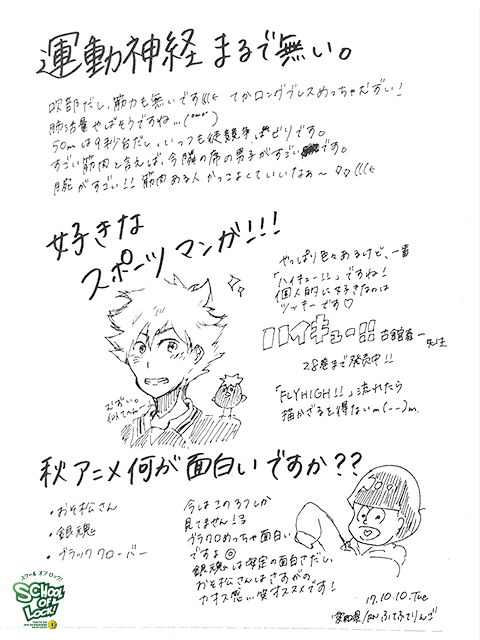 運動神経まるで無い。
吹部だし、筋力も無いです てかロングブレスめっちゃむずい!
肺活量やばそうですね…
50mは9秒台だし、いっつも徒競争はビリです。
すごい筋肉と言えば、今隣の席の男子がすごいです。
腕がすごい!! 筋肉ある人かっこよくていいなぁ〜
好きな
スポーツマンガ!!!
やっぱり色々あるけど、一番
「ハイキュー!!」ですね!
個人的に好きなのは
ツッキーです♡
ハイキュー!! 古舘春一先生
28巻まで発売中!!
「FLY HIGH!!」流れたら
描かざるを得ないm(--)m
むずい。
似てへん
秋アニメ何が面白いですか??
・おそ松さん
・銀魂
・ブラッククローバー
今はこの3つしか
見てません!3
ブラクロめっちゃ面白い
ですよ◎
銀魂は安定の面白さだし、
おそ松さんはさすがの
カオス感…笑 オススメです!
17.10.10.Tue
愛知県
スクール オブ ロック!
SCHOOL OF LOCK!